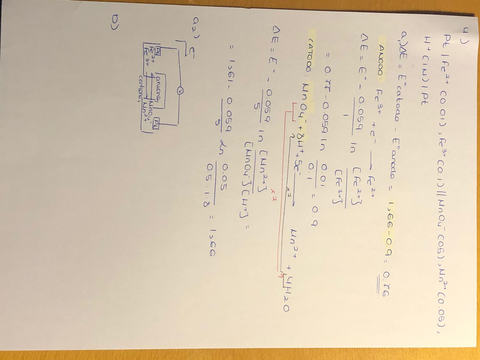 4)
Pt | Fe²⁺ (0.01), Fe³⁺ (0.1) || MnO₄⁻ (0.5), Mn²⁺ (0.05),
H⁺ (1N) | Pt
a₁) ΔE = E°catodo - E°anodo = 1,66 - 0.9 = 0.76
ANODO Fe³⁺ + e⁻ → Fe²⁺
ΔE = E° - 0.059/1 ln [Fe²⁺]/[Fe³⁺]
= 0.77 - 0.059 ln 0.01/0.1 = 0.9
CATODO MnO₄⁻ + 8H⁺ + 5e⁻ → Mn²⁺ + 4H₂O
ΔE = E° - 0.059/5 ln [Mn²⁺]/[MnO₄⁻][H⁺] =
= 1,61 - 0.059/5 ln 0.05/0.5·1⁸ = 1,66
a₂) e⁻
Pt
Fe²⁺
Fe³⁺
anodo
catodo
MnO₄⁻
Mn²⁺
Pt
b)